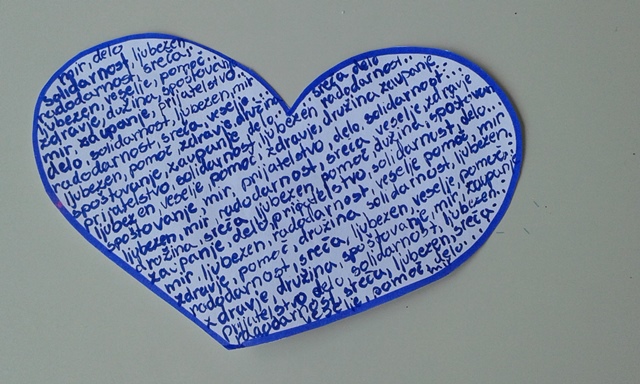 mir, delo
solidarnost, ljubezen
radodarnost, sreča
ljubezen, veselje, pomoč
zdravje, družina, spoštovanje
mir, zaupanje, prijateljstvo
delo, solidarnost, ljubezen, mir
radodarnost, sreča, veselje
ljubezen, pomoč, zdravje, družina
spoštovanje, zaupanje, delo
prijatelstvo, solidarnost, ljubezen
ljubezen, veselje, pomoč, zdravje, družina, zaupanje
spoštovanje, mir, prijatelstvo, delo, solidarnost
ljubezen, mir, radodarnost, sreča, veselje, zdravje
družina, sreča, ljubezen, pomoč, družina, spoštovanje
zaupanje, delo, prijatelstvo, solidarnost, delo
mir, ljubezen, radodarnost, veselje, pomoč, mir
zdravje, pomoč, družina, solidarnost, ljubezen
radodarnost, sreča, ljubezen, veselje, pomoč
zdravje, družina, spoštovanje, mir, zaupanje
Prijatelstvo, delo, solidarnost, ljubezen
radodarnost, sreča, ljubezen, sreča
veselje, pomoč, delo
sreča, delo
radodarnost